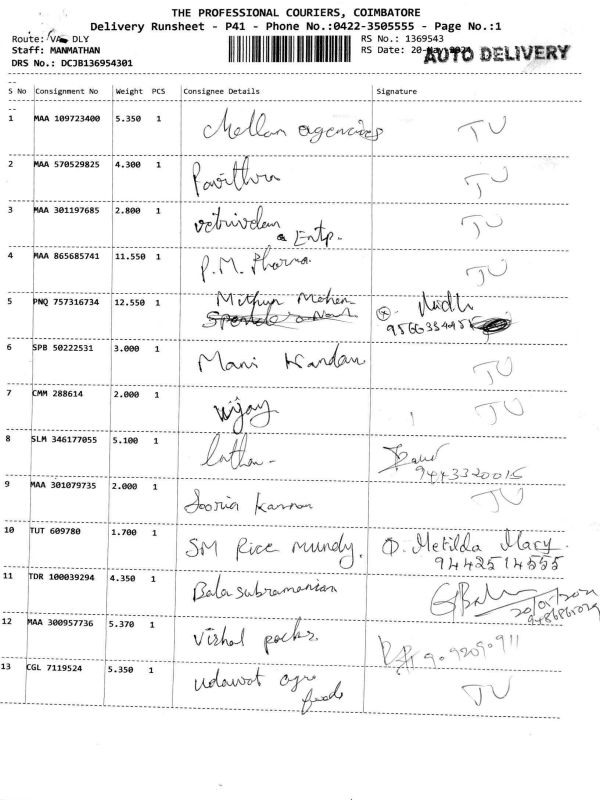 THE PROFESSIONAL COURIERS, COIMBATORE
Delivery Runsheet - P41 - Phone No.:0422-3505555 - Page No.:1
Route: DLY
RS No.: 1369543
Staff: MANMATHAN
RS Date: 20-
AUTO DELIVERY
DRS No.: DCJB136954301
S No Consignment No Weight PCS Consignee Details Signature
1 MAA 109723400 5.350 1 Mellam agencies TU
2 MAA 570529825 4.300 1 Pavithra TU
3 MAA 301197685 2.800 1 vetrivelan TU
Entp.
4 MAA 865685741 11.550 1 P.M. Pharma TU
5 PNQ 757316734 12.550 1 Mithun Mohan
6 SPB 50222531 3.000 1 Mani Kandan TU
7 CMM 288614 2.000 1 vijay TU
8 SLM 346177055 5.100 1 latha -
9443320015
9 MAA 301079735 2.000 1 Sooria Kannan TU
10 TUT 609780 1.700 1 SM Rice mundy. Metilda Mary.
9442514555
11 TDR 100039294 4.350 1 Bala subramanian
12 MAA 300957736 5.370 1 Vishal packs.
13 CGL 7119524 5.350 1 udawat agro TU
foods